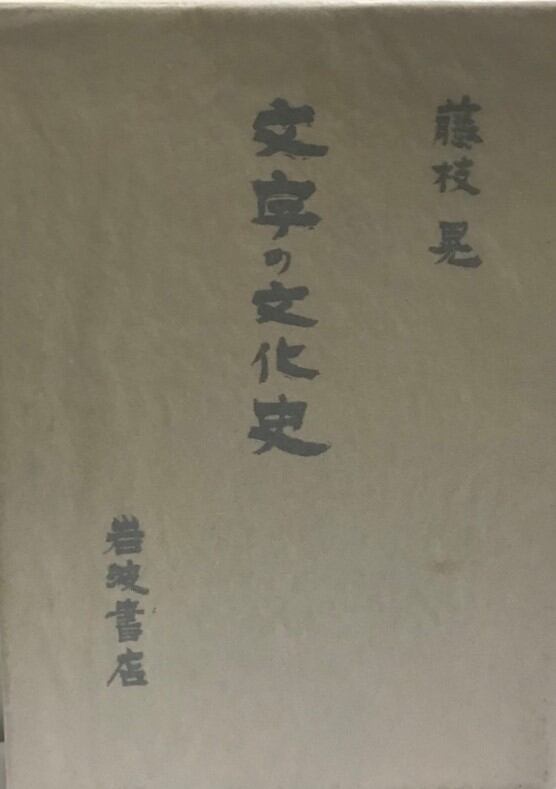 藤枝 晃
文字の文化史
岩波書店